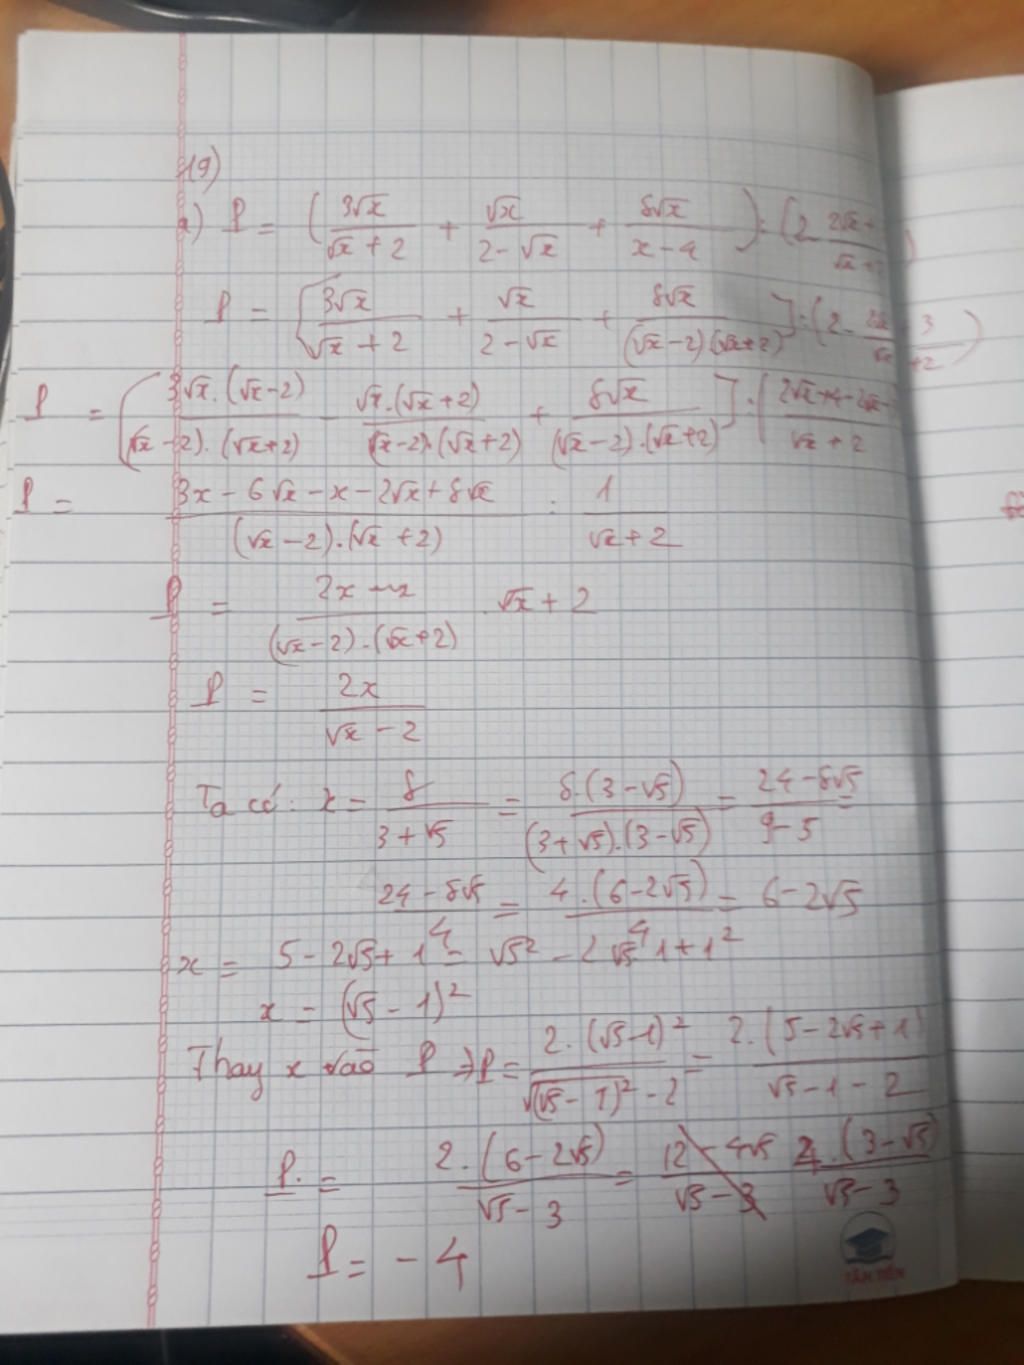 19)
a) P = (3√x/(√x + 2) + √x/(2 - √x) + 8√x/(x - 4)) : (2 2√x +/√x +
P = [3√x/(√x + 2) + √x/(2 - √x) + 8√x/((√x - 2)(√x + 2))] : (2 - 2√x 3/√x +2)
P = [3√x.(√x - 2)/((√x - 2).(√x + 2)) - √x.(√x + 2)/((√x - 2).(√x + 2)) + 8√x/((√x - 2).(√x + 2))] : (2√x + 4 - 2√x -/√x + 2
P = (3x - 6√x - x - 2√x + 8√x)/((√x - 2).(√x + 2)) : 1/(√x + 2)
P = 2x/((√x - 2).(√x + 2)) . √x + 2
P = 2x/(√x - 2)
Ta có: x = 8/(3 + √5) = 8.(3 - √5)/((3 + √5).(3 - √5)) = (24 - 8√5)/(9 - 5) =
(24 - 8√5)/4 = 4.(6 - 2√5)/4 = 6 - 2√5
x = 5 - 2√5 + 1 = √5² - 2√5 1 + 1²
x = (√5 - 1)²
Thay x vào P ⇒ P = 2.(√5 - 1)²/(√(√5 - 1)² - 2) = 2.(5 - 2√5 + 1)/(√5 - 1 - 2)
P = 2.(6 - 2√5)/(√5 - 3) = (12 - 4√5)/(√5 - 3) 4.(3 - √5)/(√5 - 3)
P = - 4
TÂN TIẾN